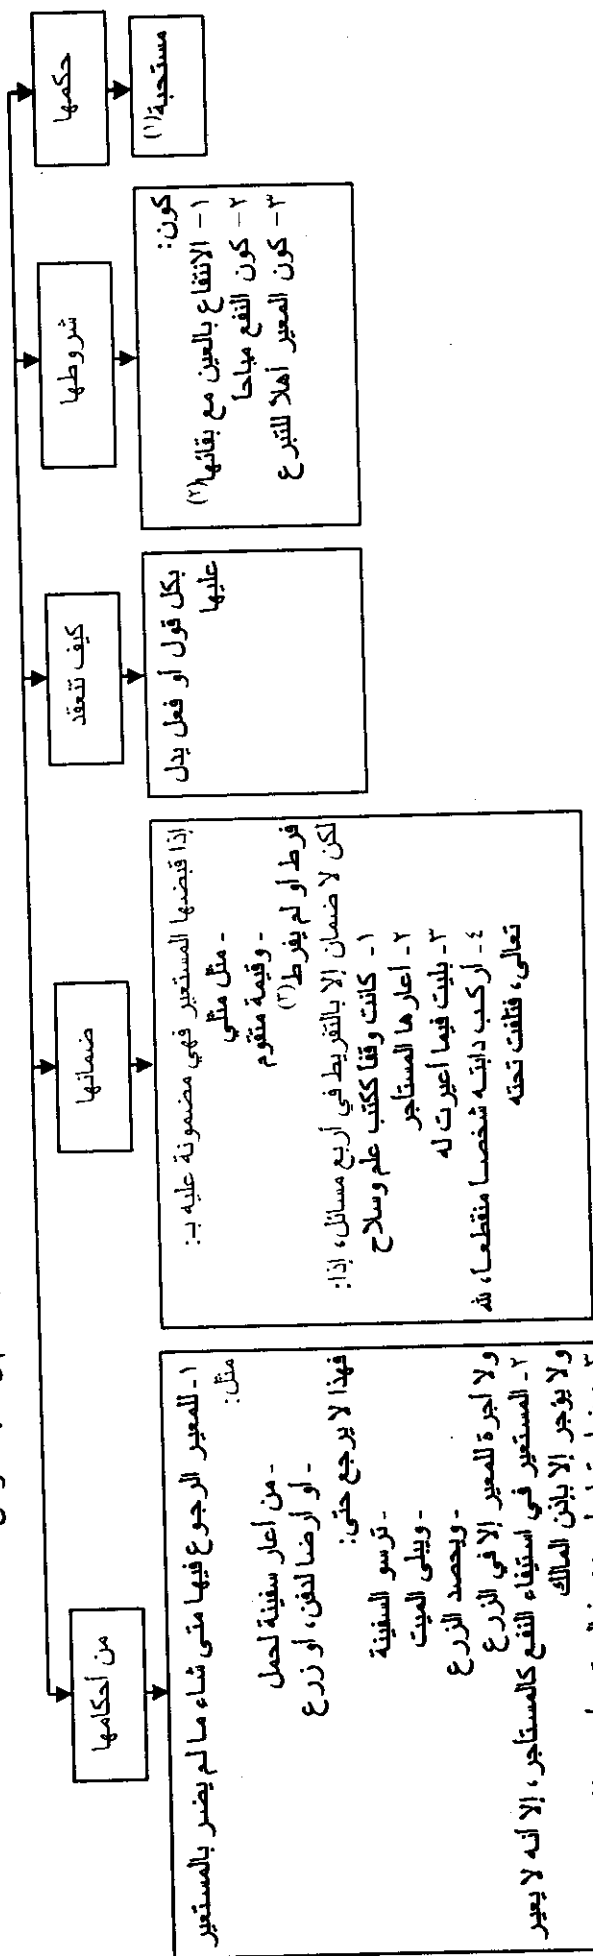 حكمها
مستحبة(١)
شروطها
كون:
١- الانتفاع بالعين مع بقائها(٢)
٢- كون النفع مباحا
٣- كون المعير أهلا للتبرع
كيف تنعقد
بكل قول أو فعل يدل
عليها
ضمانها
إذا قبضها المستعير فهي مضمونة عليه بـ:
- مثل مثلي
- وقيمة متقوم
فرط أو لم يفرط(٣)
لكن لا ضمان إلا بالتفريط في أربع مسائل، إذا:
١- كانت وقفا ككتب علم وسلاح
٢- أعارها المستأجر
٣- بليت فيما أعيرت له
٤- أركب دابته شخصا منقطعا، لله
تعالى، فتلفت تحته
من أحكامها
١- للمعير الرجوع فيها متى شاء ما لم يضر بالمستعير
مثل:
- من أعار سفينة لحمل
- أو أرضا لدفن، أو زرع
فهذا لا يرجع حتى:
- ترسو السفينة
- ويبلى الميت
- ويحصد الزرع
ولا أجرة للمعير إلا في الزرع
٢- المستعير في استيفاء النفع كالمستأجر، إلا أنه لا يعير
ولا يؤجر إلا بإذن المالك